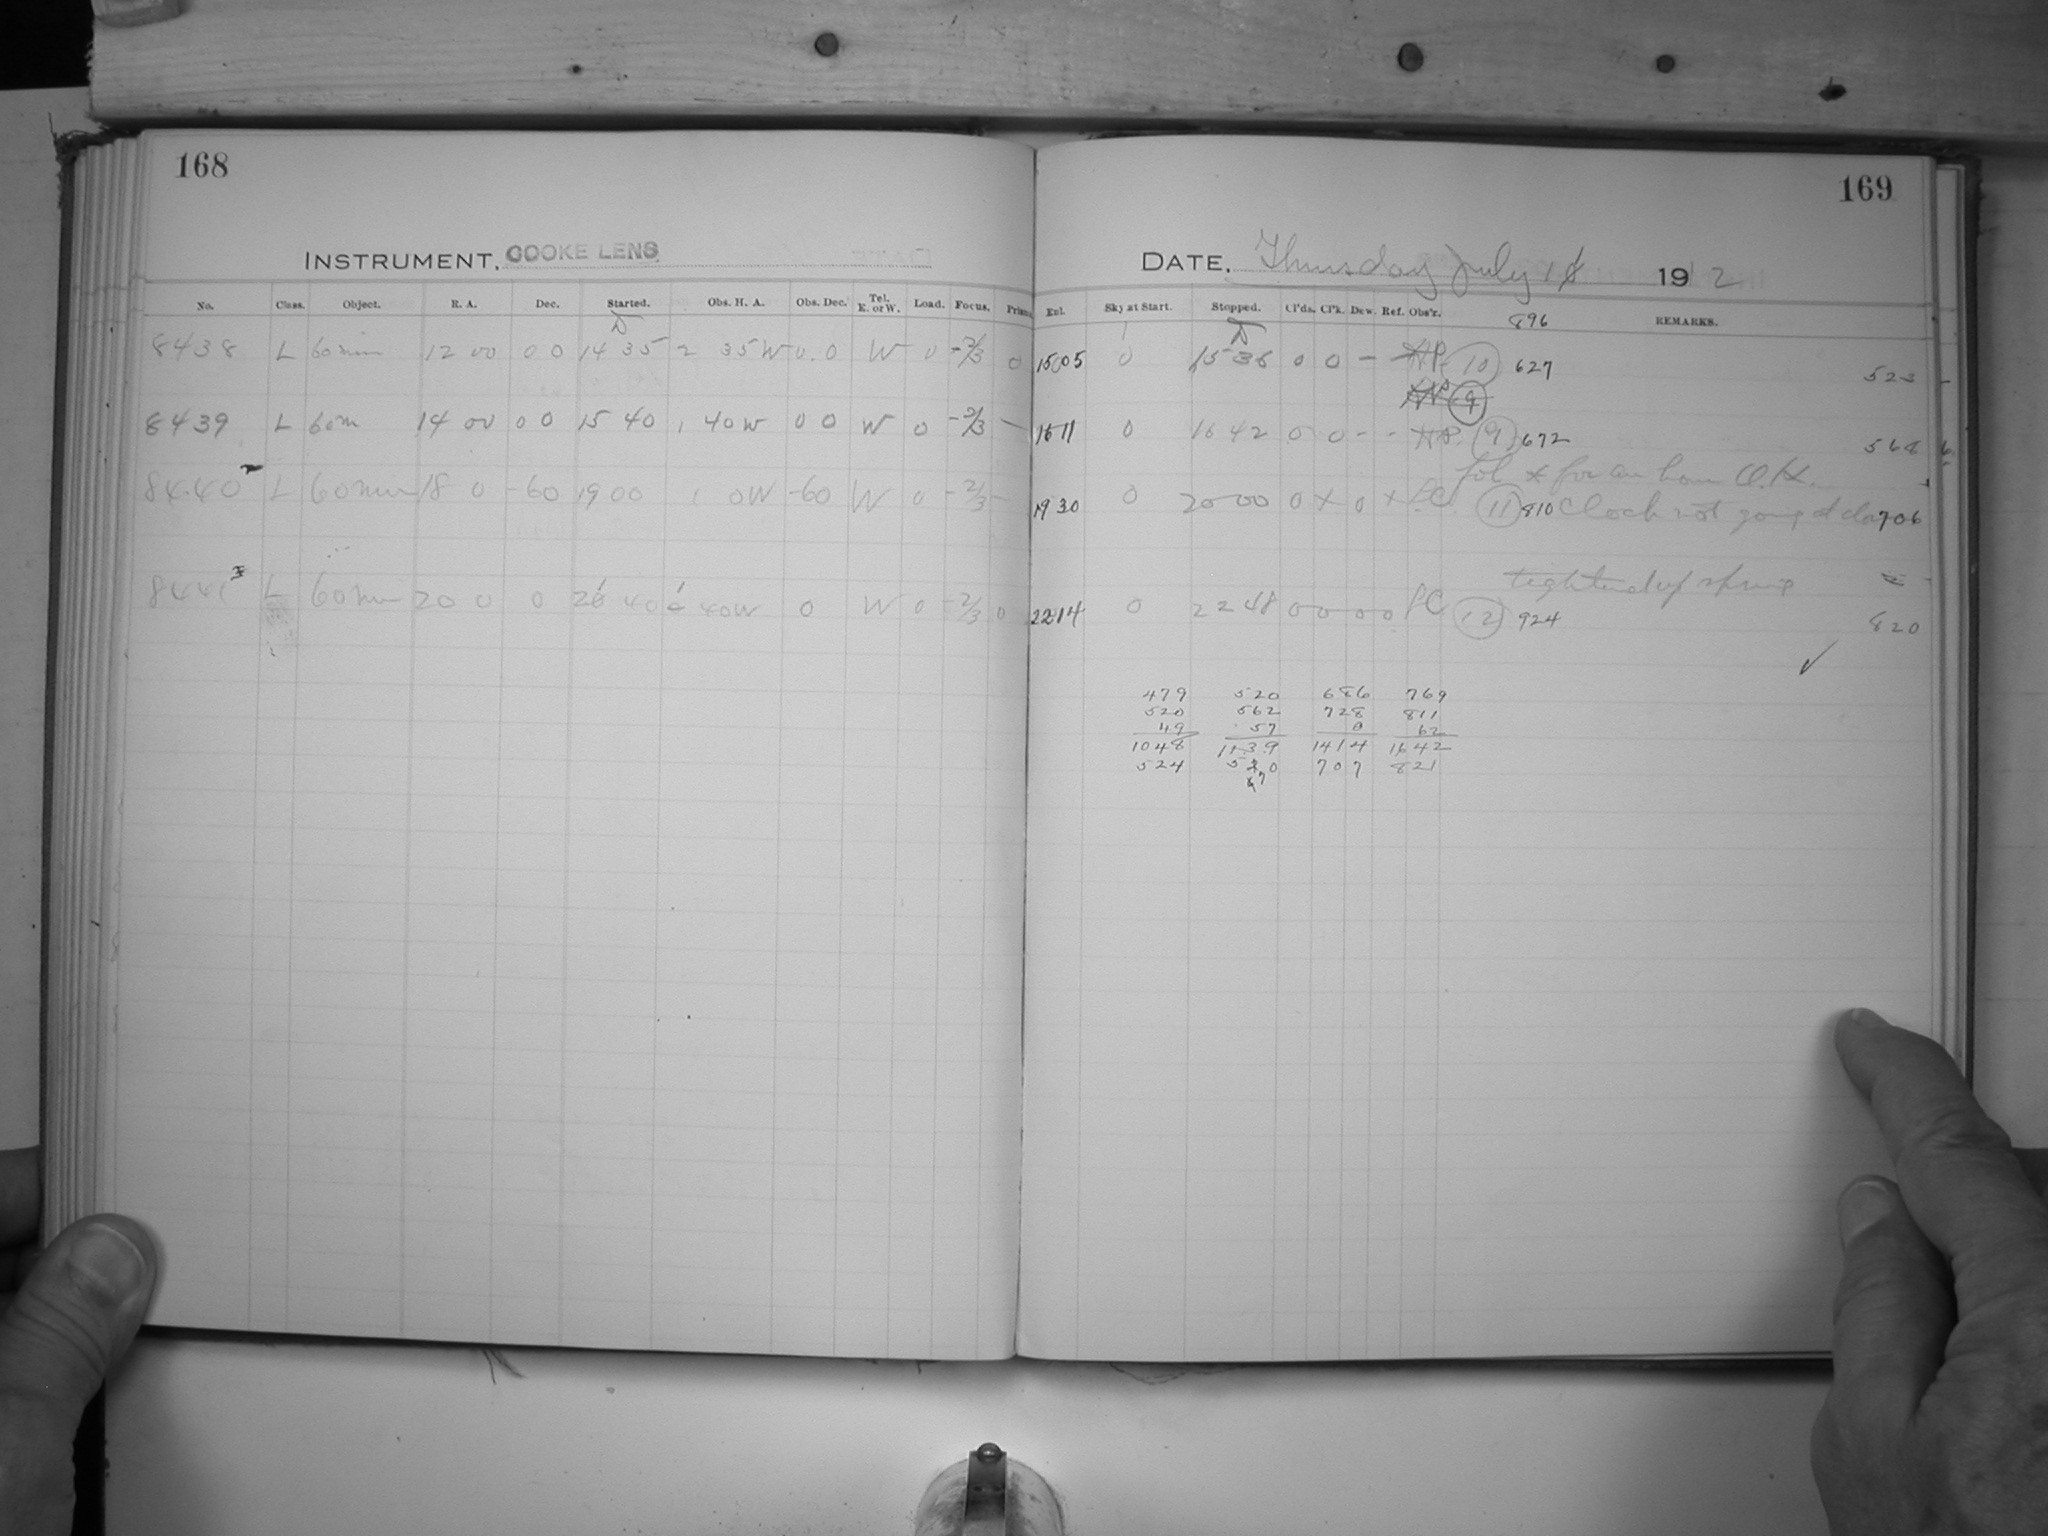 168
INSTRUMENT, COOKE LENS
No. Class. Object. R. A. Dec. Started. Obs. H. A. Obs. Dec. Tel. E. or W. Load. Focus. Prism
8438 L 60 min 12 00 0 0 14 35 2 35 W 0.0 W 0 -2/3 0
8439 L 60m 14 00 0 0 15 40 1 40 W 0 0 W 0 -2/3 —
8440 L 60 min 18 0 -60 19 00 1 0W -60 W 0 -2/3 -
8441 L 60 min 20 0 0 40 40W 0 W 0 -2/3 0
169
DATE, Thursday July 1912
Exl. Sky at Start. Stopped. Cl'ds. Cl'k. Dew. Ref. Obs'r. REMARKS.
896
1505 0 15 36 0 0 - HP. (10) 627 523
(9)
1611 0 16 42 0 0 - - HP. (9) 672 568
fol * for an hour O.K.
1930 0 20 00 0 x 0 x LC (11) 810 Clock not going 706
tightened up spring
2214 0 22 48 0 0 0 0 LC (12) 924 820
✓
479 520 686 769
520 562 728 811
49 57 0 62
1048 1139 1414 1642
524 707 821